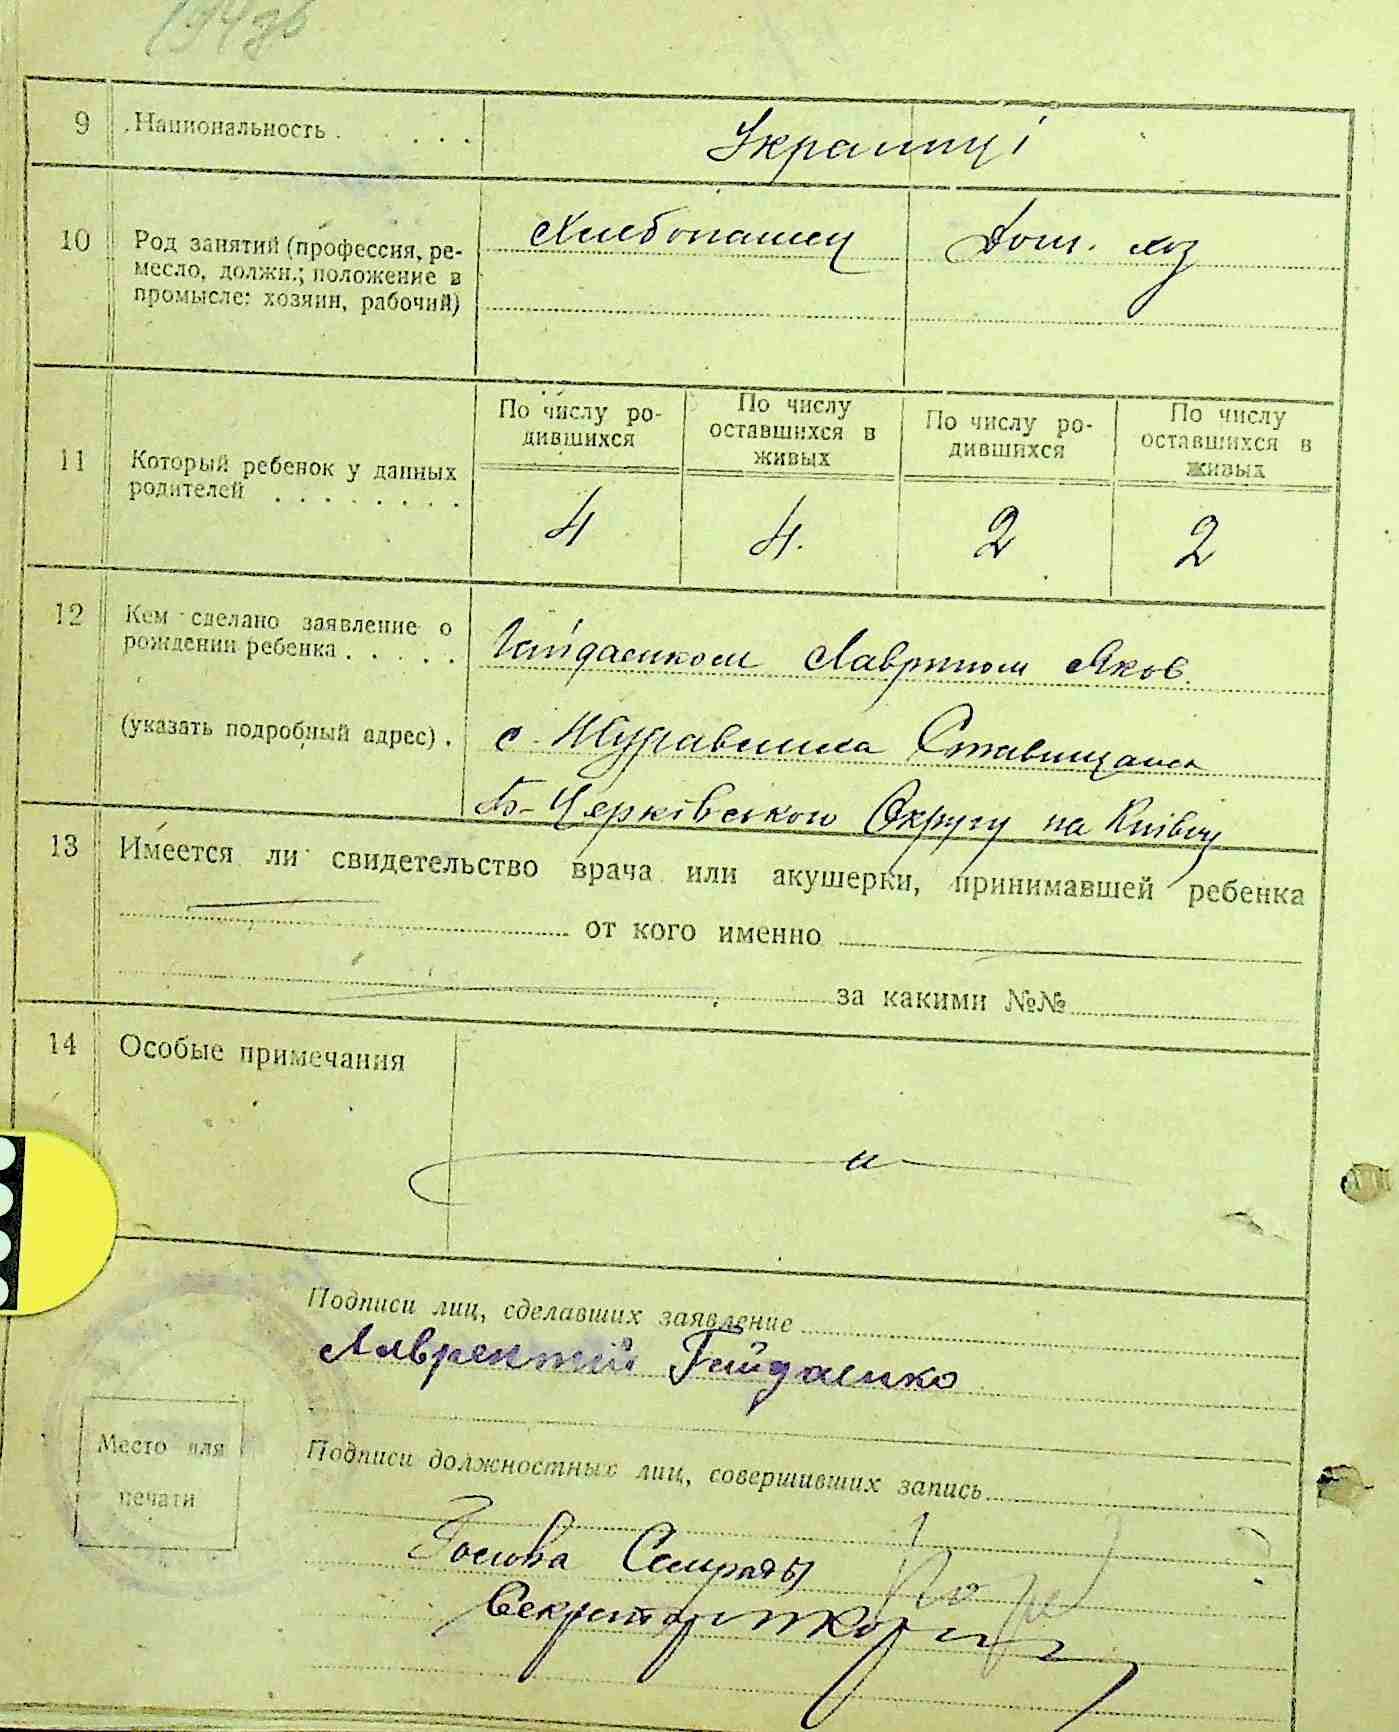 9 Национальность . . . . Українці
10 Род занятий (профессия, ре-
месло, должн.; положение в
промысле: хозяин, рабочий)
Хлебопашец Дом. хоз
11 Который ребенок у данных
родителей . . . . . . . .
По числу ро-
дившихся
По числу
оставшихся в
живых
По числу ро-
дившихся
По числу
оставшихся в
живых
4 4. 2 2
12 Кем сделано заявление о
рождении ребенка . . . . .
Гайдаенком Лаврином Яков.
(указать подробный адрес) . с. Журавлиха Ставищанск
Б-Черківського Округу на Київщ
13 Имеется ли свидетельство врача или акушерки, принимавшей ребенка
от кого именно
за какими №№
14 Особые примечания
Подписи лиц, сделавших заявление
Лаврентий Гайдаенко
Место для
печати
Подписи должностных лиц, совершивших запись
Голова Сельрады
Секретар